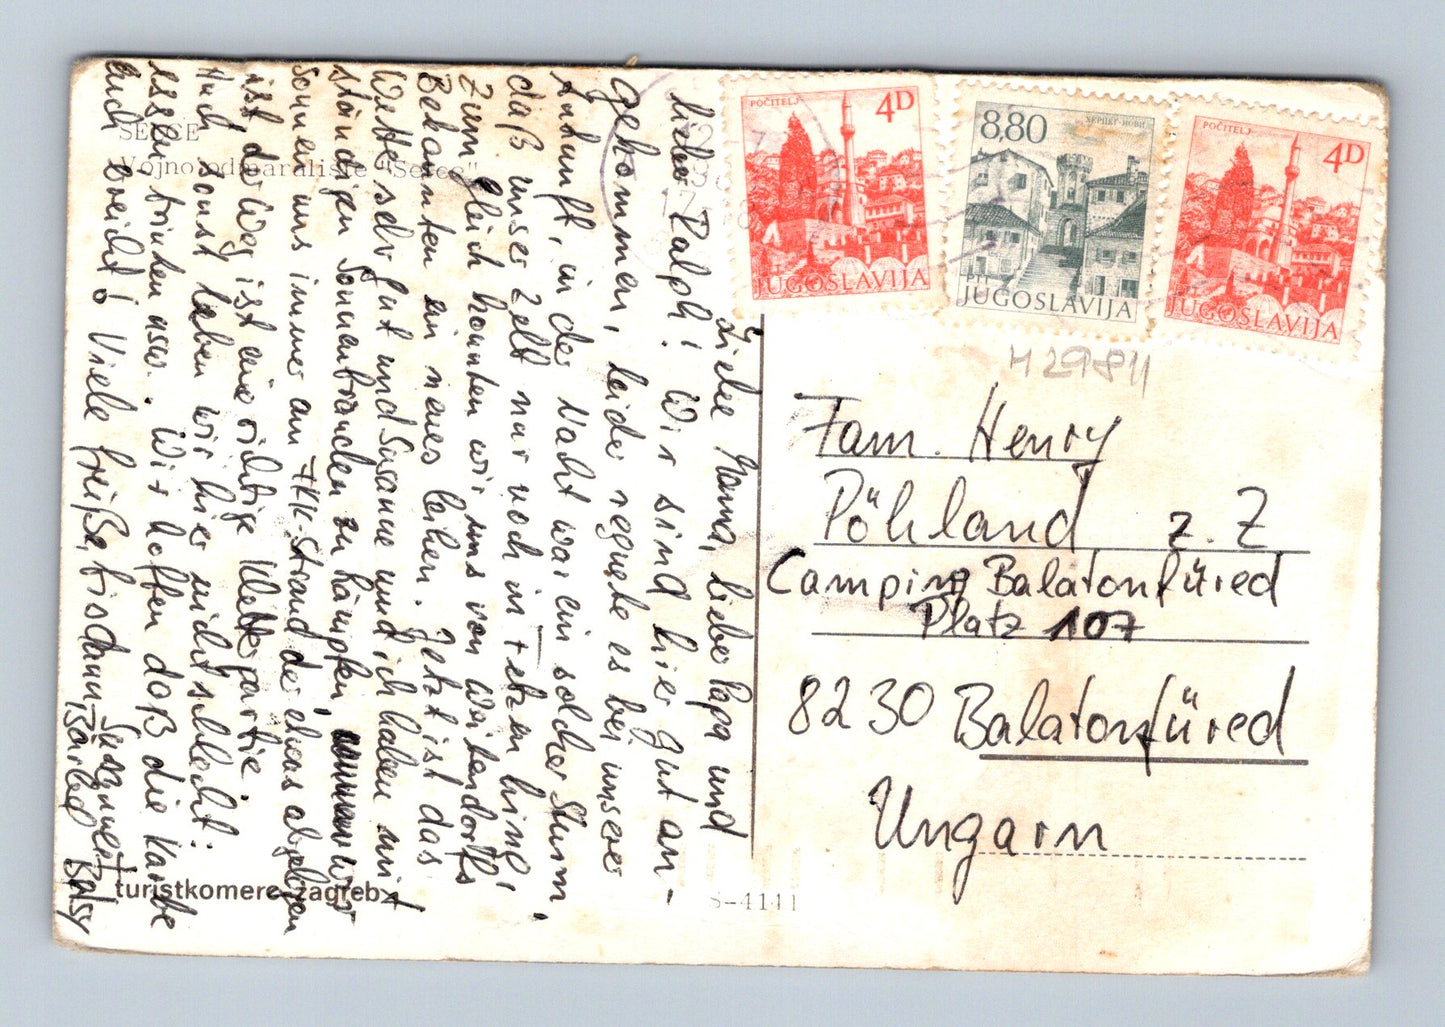 SELCE
Vojno odmaralište "Selce"
Liebe Mama, lieber Papa und
lieber Ralph! Wir sind hier gut an-
gekommen, leider regnete es bei unserer
Ankunft, in der Nacht war ein solcher Sturm,
daß unser Zelt nur noch in Fetzen hing,
zum Glück konnten wir uns von
Bekannten ein neues leihen. Jetzt ist das
Wetter sehr gut und Susanne und ich haben mit
ständigen Sonnenbränden zu kämpfen, wenn wir
sonnen uns immer am FKK-Strand der etwas abgelegen
ist, der Weg ist eine richtige Kletterpartie.
Und sonst leben wir hier nicht schlecht:
essen, trinken usw. Wir hoffen daß die Karte
euch erreicht! Viele Grüße, bis dann
Susanne +
turistkomerc-zagreb
S-4141
POČITELJ
4D
JUGOSLAVIJA
8,80
ХЕРЦЕГ-НОВИ
PTT
JUGOSLAVIJA
POČITELJ
4D
JUGOSLAVIJA
H 2984
Fam. Henry
Pöhland z. Z
Camping Balatonfüred
Platz 107
8230 Balatonfüred
Ungarn